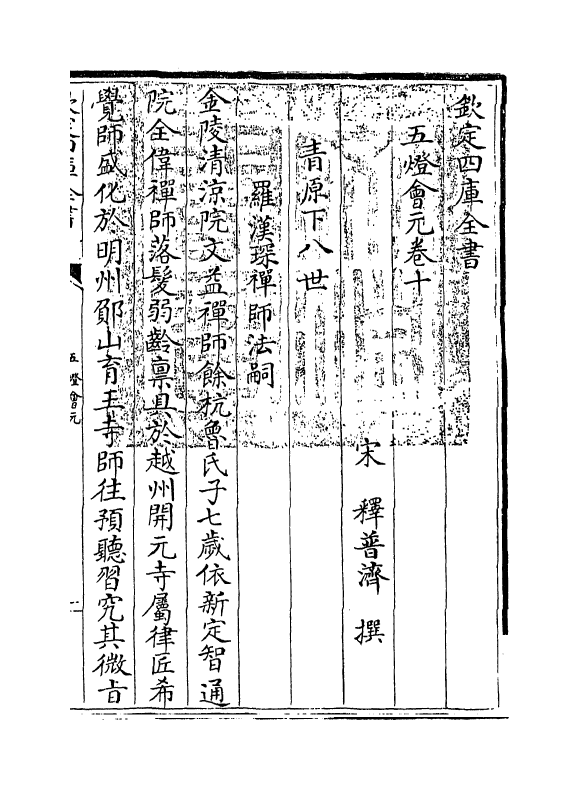 欽定四庫全書
五燈會元卷十
宋 釋普濟 撰
青原下八世
羅漢琛禪師法嗣
金陵清涼院文益禪師餘杭魯氏子七歲依新定智通
院全偉禪師落髮弱齡禀具於越州開元寺屬律匠希
覺師盛化於明州鄮山育王寺師往預聽習究其微旨
五燈會元